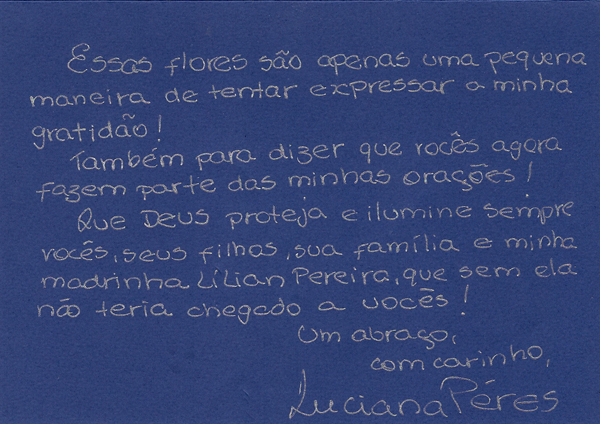 Essas flores são apenas uma pequena
maneira de tentar expressar a minha
gratidão!
Também para dizer que vocês agora
fazem parte das minhas orações!
Que Deus proteja e ilumine sempre
vocês, seus filhos, sua família e minha
madrinha Lílian Pereira, que sem ela
não teria chegado a vocês!
Um abraço,
com carinho,
Luciana Péres